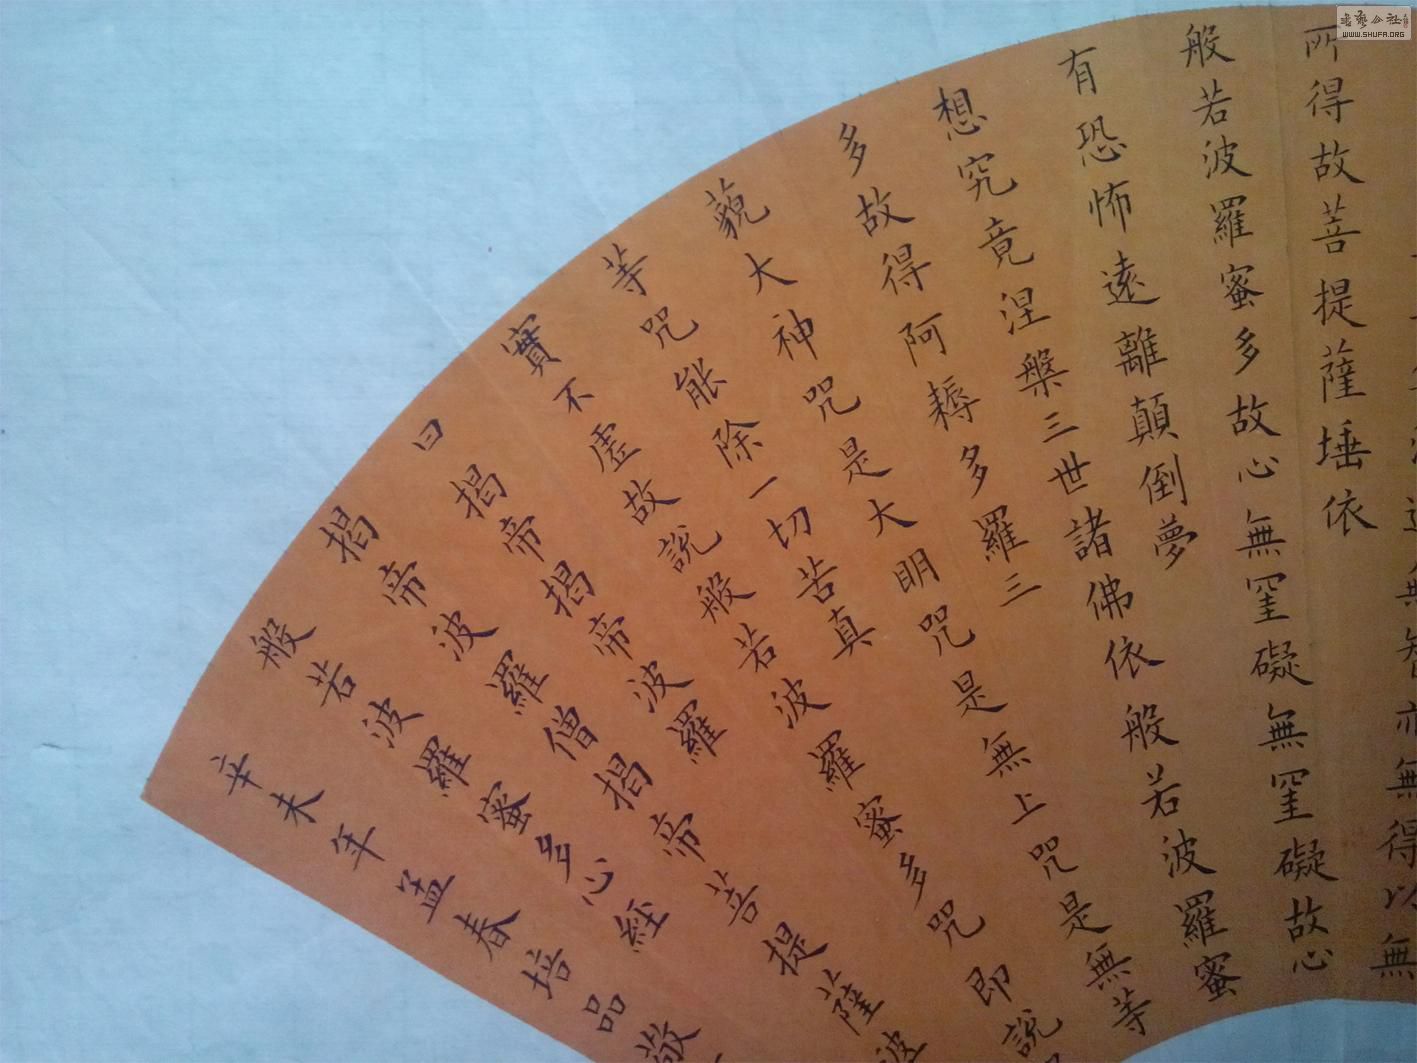 無智亦無得以無
所得故菩提薩埵依
般若波羅蜜多故心無罣礙無罣礙故心
有恐怖遠離顛倒夢
想究竟涅槃三世諸佛依般若波羅蜜
多故得阿耨多羅三
藐大神咒是大明咒是無上咒是無等
等咒能除一切苦真
實不虛故說般若波羅蜜多咒即說
曰揭帝揭帝波羅
揭帝波羅僧揭帝菩提薩
般若波羅蜜多心經
辛未年孟春培品敬
書藝公社
WWW.SHUFA.ORG